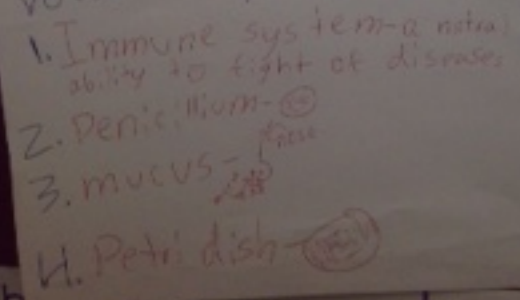 1. Immune system-a natral
ability to fight of diseases
2. Penicillium-
3. mucus-
nose
4. Petri dish-